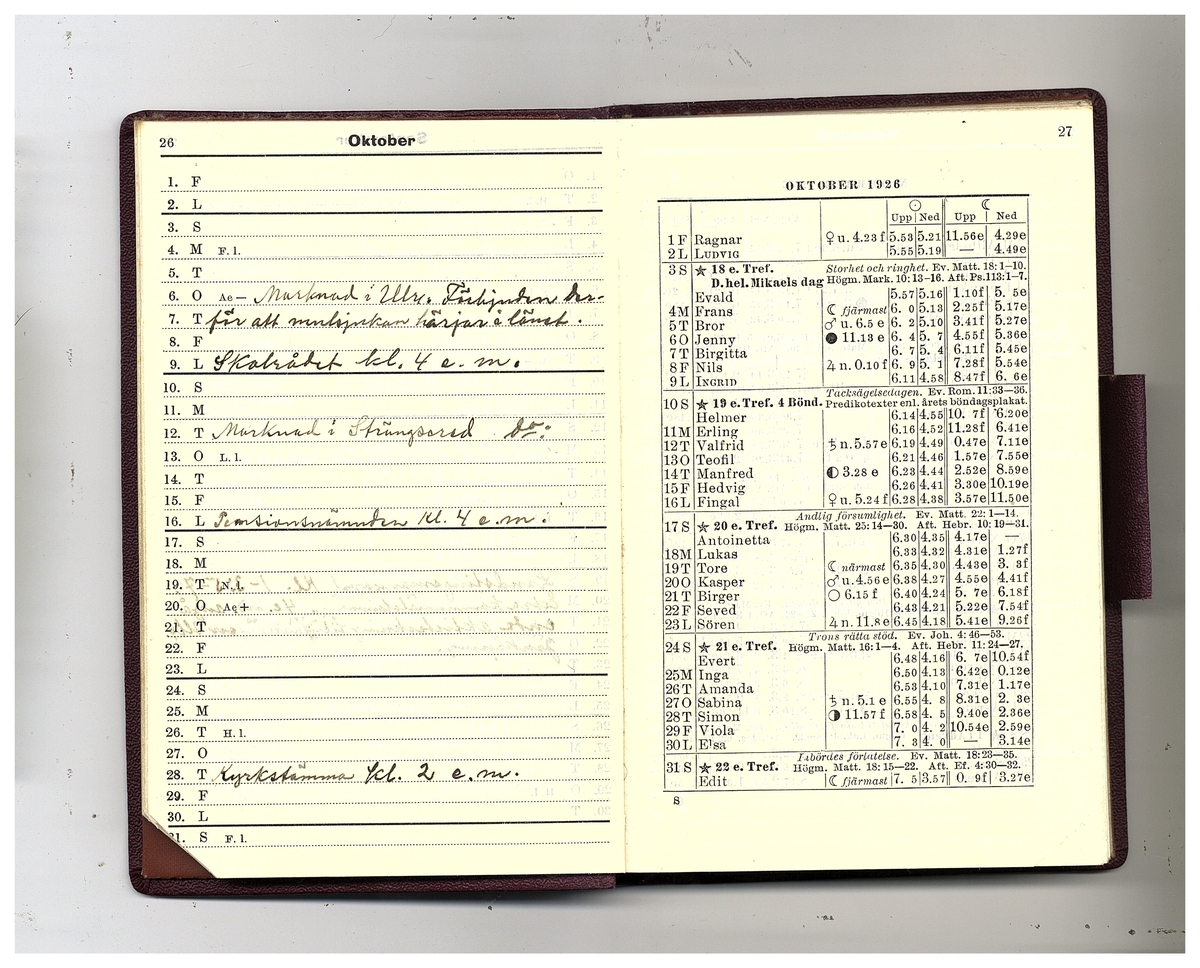 26
Oktober
1. F
2. L
3. S
4. M F. l.
5. T
6. O Ae— Marknad i Ulr. Förbjuden där-
7. T för att mulsjukan härjar i länet.
8. F
9. L Skolrådet kl. 4 e. m.
10. S
11. M
12. T Marknad i do:
13. O L. l.
14. T
15. F
16. L Pensionsnämnden kl. 4 e. m.
17. S
18. M
19. T N. l.
20. O Ae+
21. T
22. F
23. L
24. S
25. M
26. T H. l.
27. O
28. T Kyrkstämma kl. 2 e. m.
29. F
30. L
31. S F. l.
27
OKTOBER 1926
☉ ☾
Upp Ned Upp Ned
1 F Ragnar ♀ u. 4.23 f 5.53 5.21 11.56e 4.29e
2 L LUDVIG 5.55 5.19 — 4.49e
3 S ★ 18 e. Tref. Storhet och ringhet. Ev. Matt. 18: 1–10.
D. hel. Mikaels dag Högm. Mark. 10: 13–16. Aft. Ps. 113: 1–7.
Evald 5.57 5.16 1.10f 5. 5e
4 M Frans ☾ fjärmast 6. 0 5.13 2.25f 5.17e
5 T Bror ♂ u. 6.5 e 6. 2 5.10 3.41f 5.27e
6 O Jenny ● 11.13 e 6. 4 5. 7 4.55f 5.36e
7 T Birgitta 6. 7 5. 4 6.11f 5.45e
8 F Nils ♃ n. 0.10 f 6. 9 5. 1 7.28f 5.54e
9 L INGRID 6.11 4.58 8.47f 6. 6e
Tacksägelsedagen. Ev. Rom. 11: 33–36.
10 S ★ 19 e. Tref. 4 Bönd. Predikotexter enl. årets böndagsplakat.
Helmer 6.14 4.55 10. 7f 6.20e
11 M Erling 6.16 4.52 11.28f 6.41e
12 T Valfrid ♄ n. 5.57 e 6.19 4.49 0.47e 7.11e
13 O Teofil 6.21 4.46 1.57e 7.55e
14 T Manfred ◐ 3.28 e 6.23 4.44 2.52e 8.59e
15 F Hedvig 6.26 4.41 3.30e 10.19e
16 L Fingal ♀ u. 5.24 f 6.28 4.38 3.57e 11.50e
Andlig försumlighet. Ev. Matt. 22: 1–14.
17 S ★ 20 e. Tref. Högm. Matt. 25: 14–30. Aft. Hebr. 10: 19–31.
Antoinetta 6.30 4.35 4.17e —
18 M Lukas 6.33 4.32 4.31e 1.27f
19 T Tore ☾ närmast 6.35 4.30 4.43e 3. 3f
20 O Kasper ♂ u. 4.56 e 6.38 4.27 4.55e 4.41f
21 T Birger ○ 6.15 f 6.40 4.24 5. 7e 6.18f
22 F Seved 6.43 4.21 5.22e 7.54f
23 L Sören ♃ n. 11.8 e 6.45 4.18 5.41e 9.26f
Trons rätta stöd. Ev. Joh. 4: 46–53.
24 S ★ 21 e. Tref. Högm. Matt. 16: 1–4. Aft. Hebr. 11: 24–27.
Evert 6.48 4.16 6. 7e 10.54f
25 M Inga 6.50 4.13 6.42e 0.12e
26 T Amanda 6.53 4.10 7.31e 1.17e
27 O Sabina ♄ n. 5.1 e 6.55 4. 8 8.31e 2. 3e
28 T Simon ◑ 11.57 f 6.58 4. 5 9.40e 2.36e
29 F Viola 7. 0 4. 2 10.54e 2.59e
30 L Elsa 7. 3 4. 0 — 3.14e
Inbördes förlåtelse. Ev. Matt. 18: 23–35.
31 S ★ 22 e. Tref. Högm. Matt. 18: 15–22. Aft. Ef. 4: 30–32.
Edit ☾ fjärmast 7. 5 3.57 0. 9f 3.27e
S